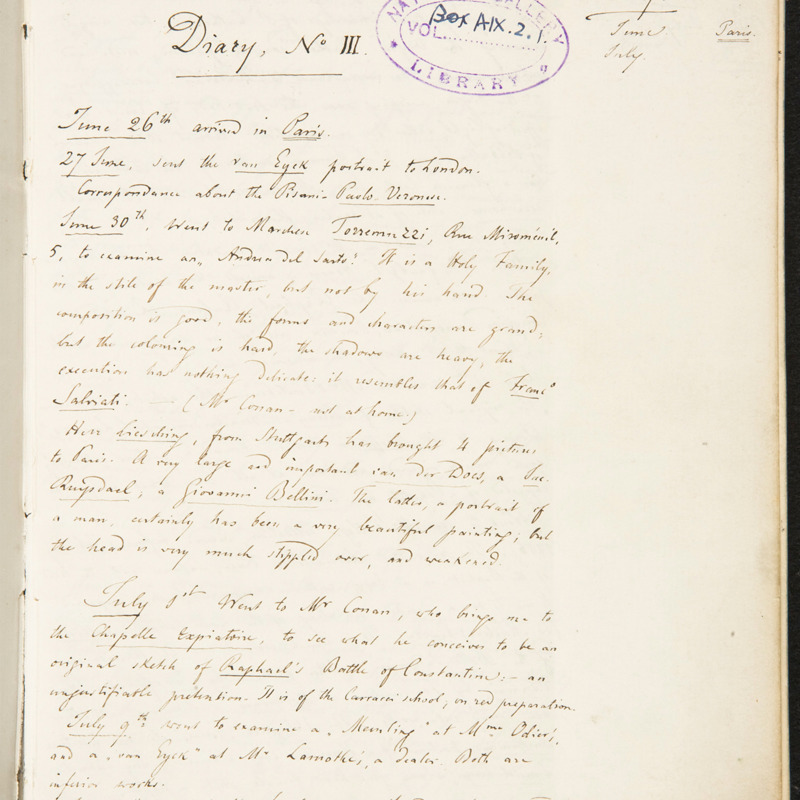 NATIONAL GALLERY
BOX AIX.2.1.
VOL.
LIBRARY
Diary, No III.
June Paris.
July.
June 26th arrived in Paris.
27 June, sent the van Eyck portrait to London.
Correspondance about the Pisani-Paolo Veronese.
June 30th. Went to Marchese Torremuzzi, Rue Miroménil,
5, to examine an „Andrea del Sarto". It is a Holy Family,
in the stile of the master, but not by his hand. The
composition is good, the forms and characters are grand;
but the colouring is hard, the shadows are heavy, the
execution has nothing delicate: it resembles that of Franco
Salviati. — (Mr Conan - not at home.)
Herr Liesching, from Stuttgart has brought 4 pictures
to Paris. A very large and important van der Does, a Jac.
Ruysdael, a Giovanni Bellini. The latter, a portrait of
a man, certainly has been a very beautiful painting; but
the head is very much stippled over, and weakened.
July 1st Went to Mr Conan, who brings me to
the Chapelle Expiatoire, to see what he conceives to be an
original sketch of Raphael's Battle of Constantine: - an
unjustifiable pretention. It is of the Carracci school, on red preparation.
July 9th went to examine a „Memling" at Mme Odier's,
and a „van Eyck" at Mr Lamothe's, a dealer. Both are
inferior works.